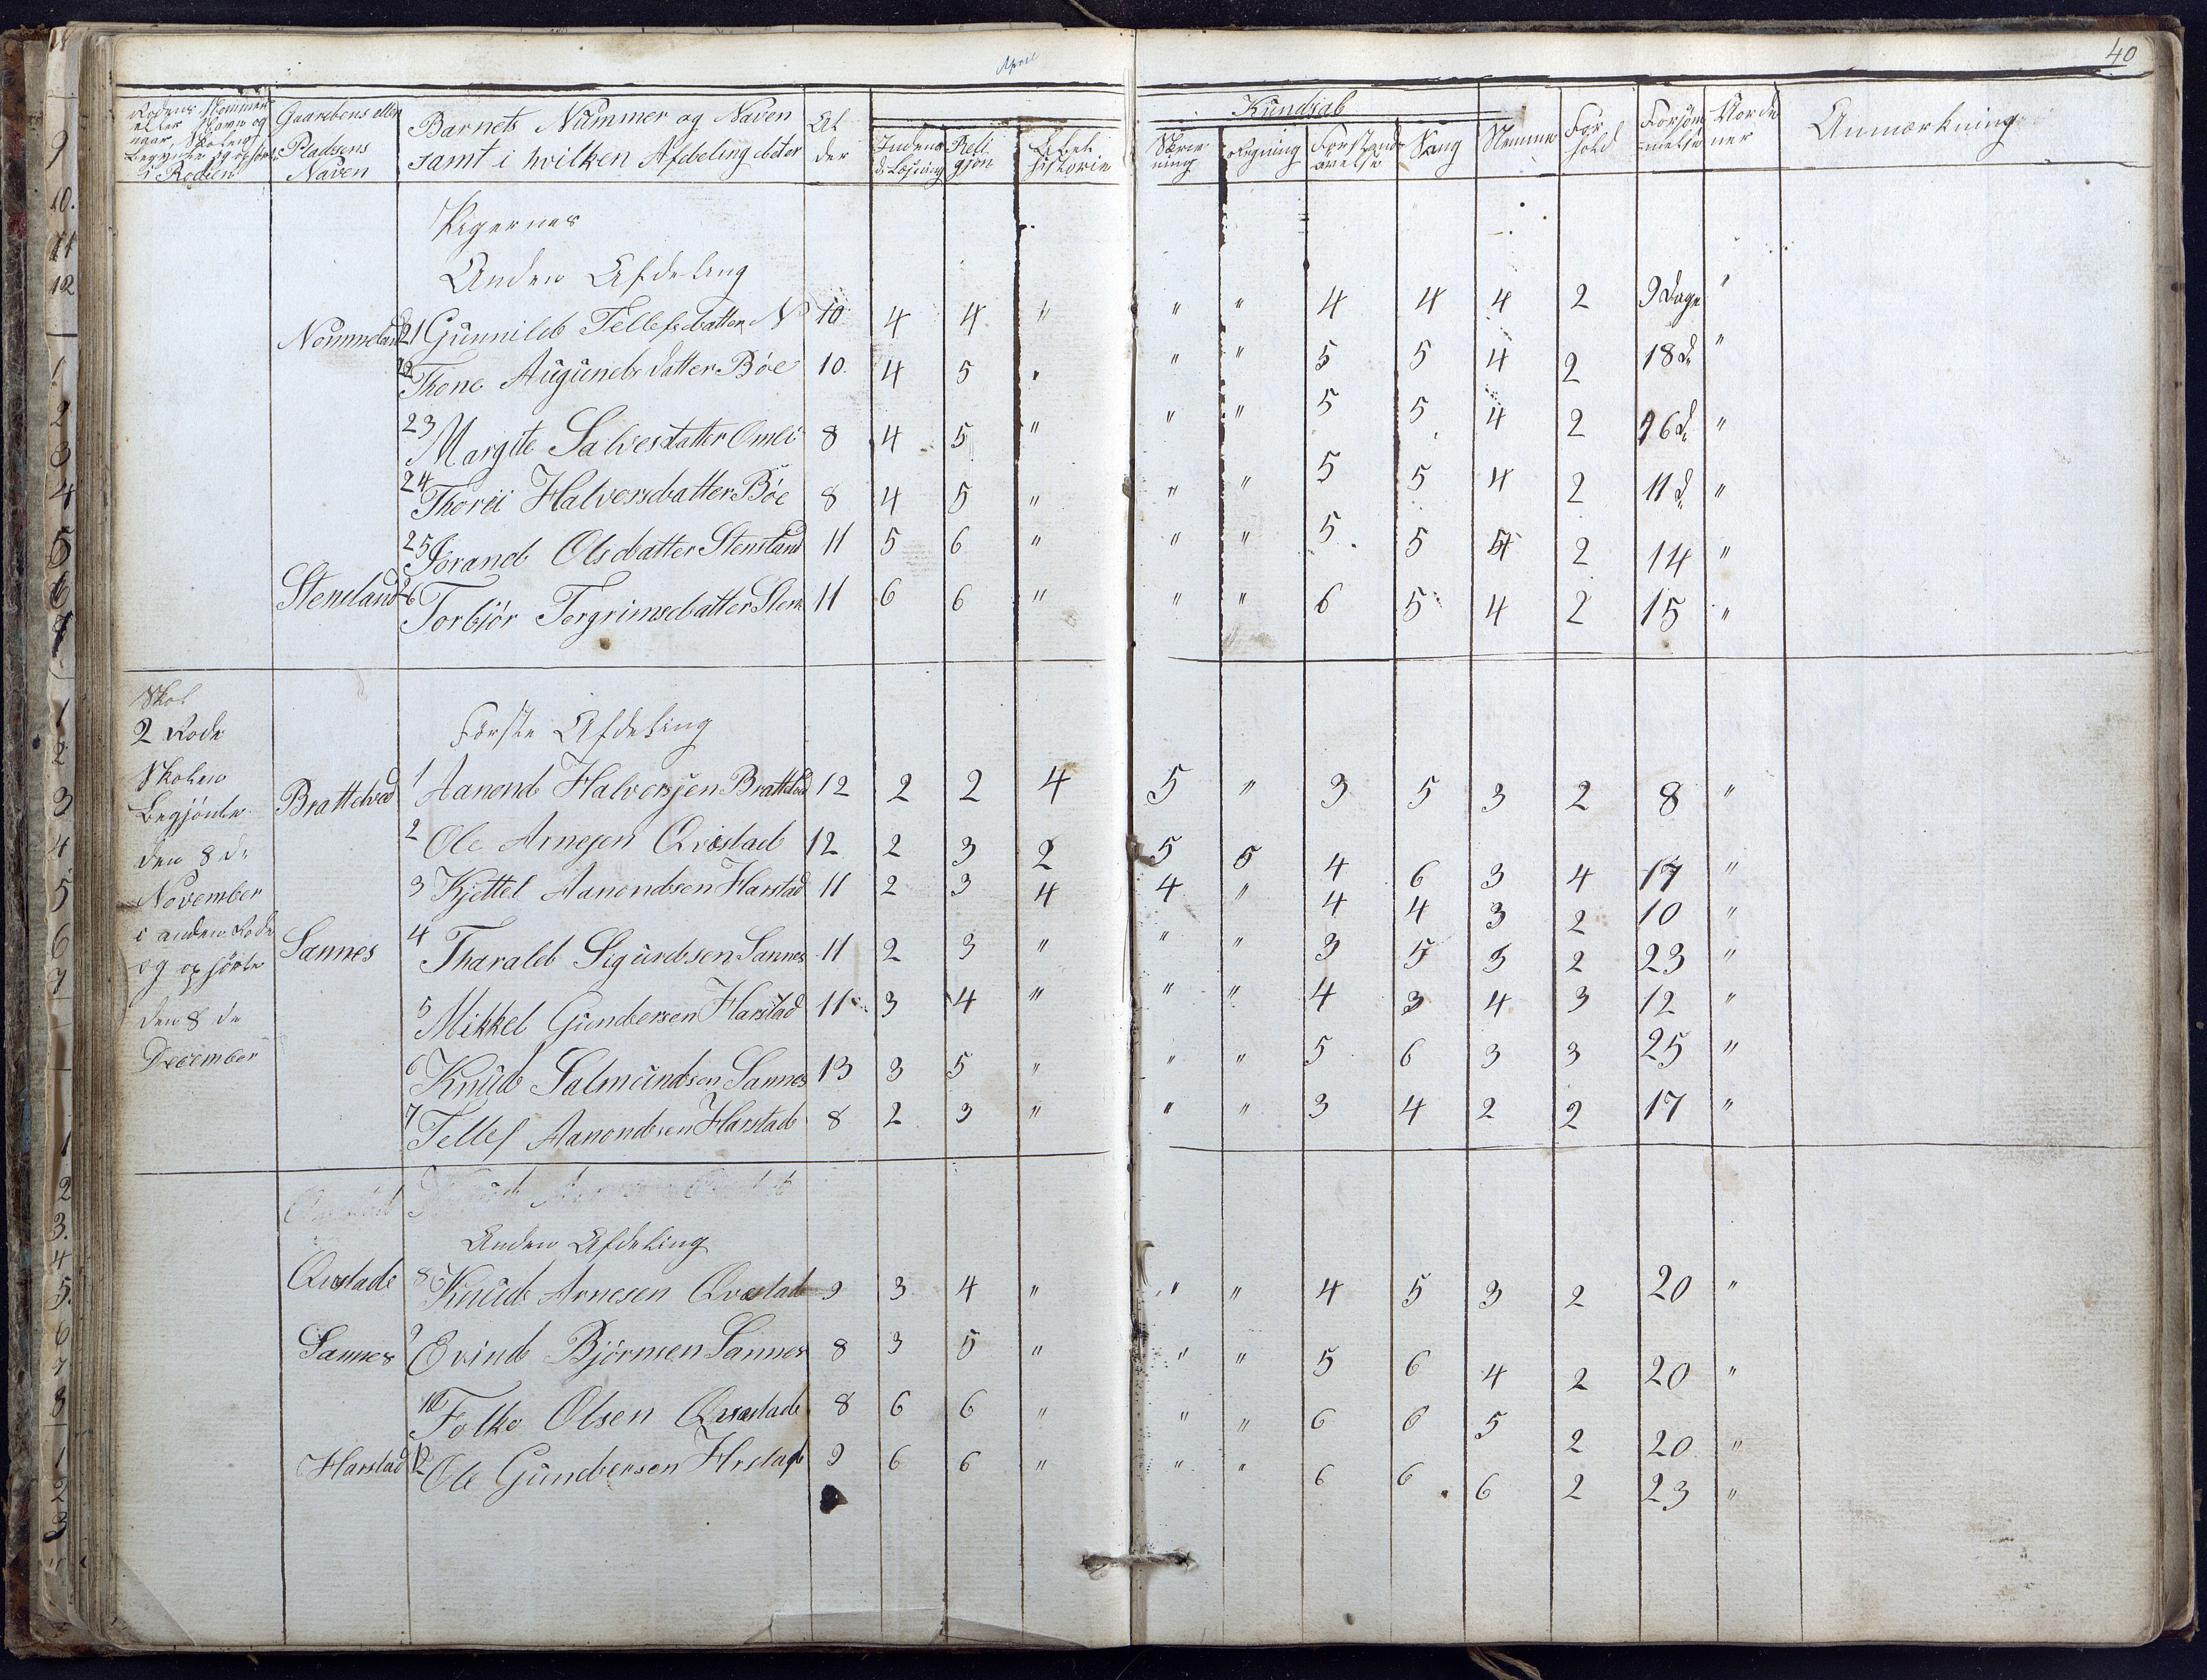 April
40
Rodens Nommer
eller Navn og
naar Skolen
begyndte og opförte
i Roden
Gaardens eller
Pladsens
Naven
Barnets Nummer og Naven
samt i hvilken Afdeling deter
Al
der
Kundsab
Indena
d Læsning
Reli
gjon
Bibel
historie
Skriv
ning
Regning
Forstand
övelse
Sang
Nemme
For
hold
Forsöm
melse
Norde
ner
Anmærkning
Pigernes
Anden Afdeling
Nommeland 21 Gunnild Tellefsdatter N 10 4 4 " " " 4 4 4 2 9 Dage "
22 Thone Augunds datter Böe 10. 4 5 " " " 5 5 4 2 18 d "
23 Margite Salvesdatter Omli 8 4 5 " " " 5 5 4 2 26 d "
24 Thorei Halversdatter Böe 8 4 5 " " " 5 5 4 2 11 d "
25 Jorand Olsdatter Stensland 11 5 6 " " " 5 5 4 2 14 "
Stensland 26 Torbjör Torgrimsdatter Stens 11 6 6 " " " 6 5 4 2 15 "
Skol
2 Rode
Skolen
Begjönte
den 8 d
November
i anden Rode
og opförte
den 8 de
December
Förste Afdeling
Brattelved 1 Aanond Halversjen Brattelved 12 2 2 4 5 " 3 5 3 2 8 "
2 Ole Arnesen Qvæstad 12 2 3 2 5 5 4 6 3 4 17 "
3 Kjettel Aanondsen Harstad 11 2 3 4 4 " 4 4 3 2 10 "
Sannes 4 Tharald Sigurdsen Sannes 11 2 3 " " " 3 5 3 2 23 "
5 Mikkel Gundersen Harstad 11 3 4 " " " 4 3 4 3 12 "
6 Knud Salmundsen Sannes 13 3 5 " " " 5 6 3 3 25 "
7 Tellef Aanondsen Harstad 8 2 3 " " " 3 4 2 2 17 "
Anden Afdeling
Qvæstad 8 Knud Arnesen Qvæstad 9 3 4 " " " 4 5 3 2 20 "
Sannes 9 Evind Björnsen Sannes 8 3 5 " " " 5 6 4 2 20 "
10 Folke Olsen Qvæstad 8 6 6 " " " 6 6 5 2 20 "
Harstad 12 Ole Gundersen Hrstad 9 6 6 " " " 6 6 6 2 23 "
9
10.
11
12
1
2
3
4
5
6
7
1
2
3
4
5
6
7
1
2
3.
4
5.
6
7
8
1
2
3